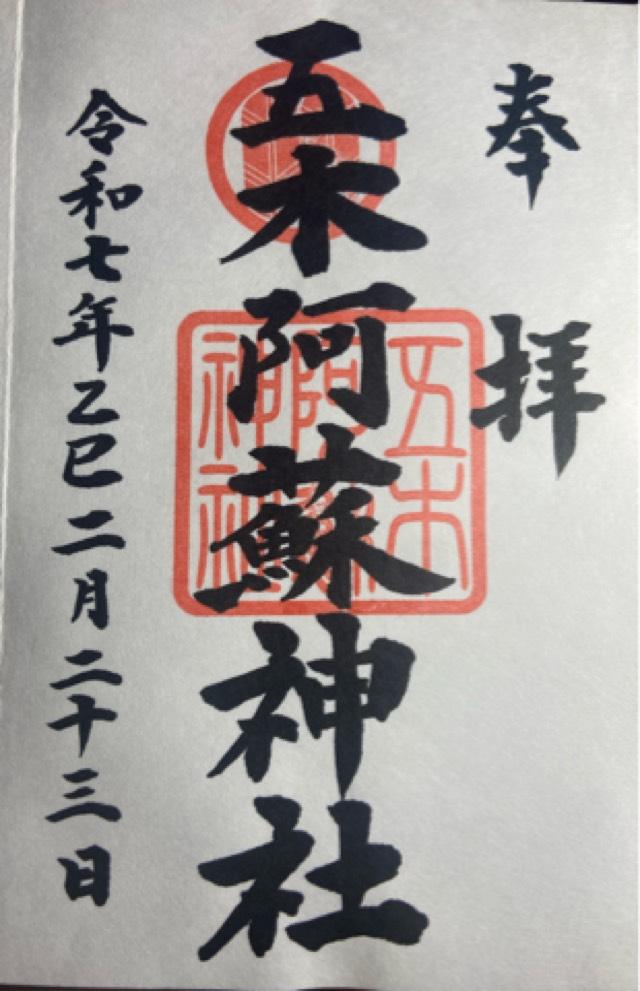 奉拝
五木阿蘇神社
五木阿蘇神社
令和七年乙巳二月二十三日